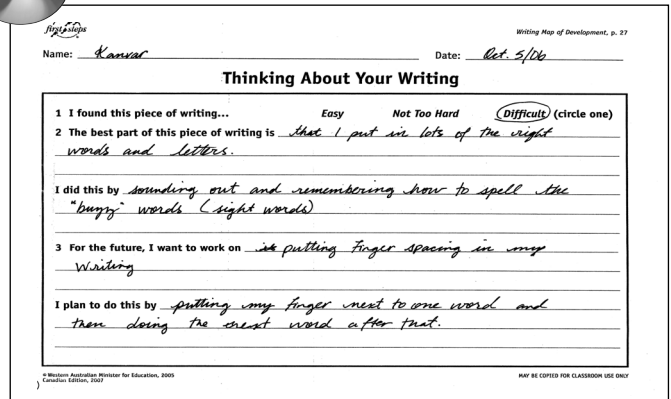 first steps
Writing Map of Development, p. 27
Name: Kanvar Date: Oct. 5/06
Thinking About Your Writing
1 I found this piece of writing... Easy Not Too Hard Difficult (circle one)
2 The best part of this piece of writing is that I put in lots of the right
words and letters.
I did this by sounding out and remembering how to spell the
"buzz" words (sight words)
3 For the future, I want to work on putting finger spacing in my
Writing
I plan to do this by putting my finger next to one word and
then doing the next word after that.
© Western Australian Minister for Education, 2005
Canadian Edition, 2007
MAY BE COPIED FOR CLASSROOM USE ONLY